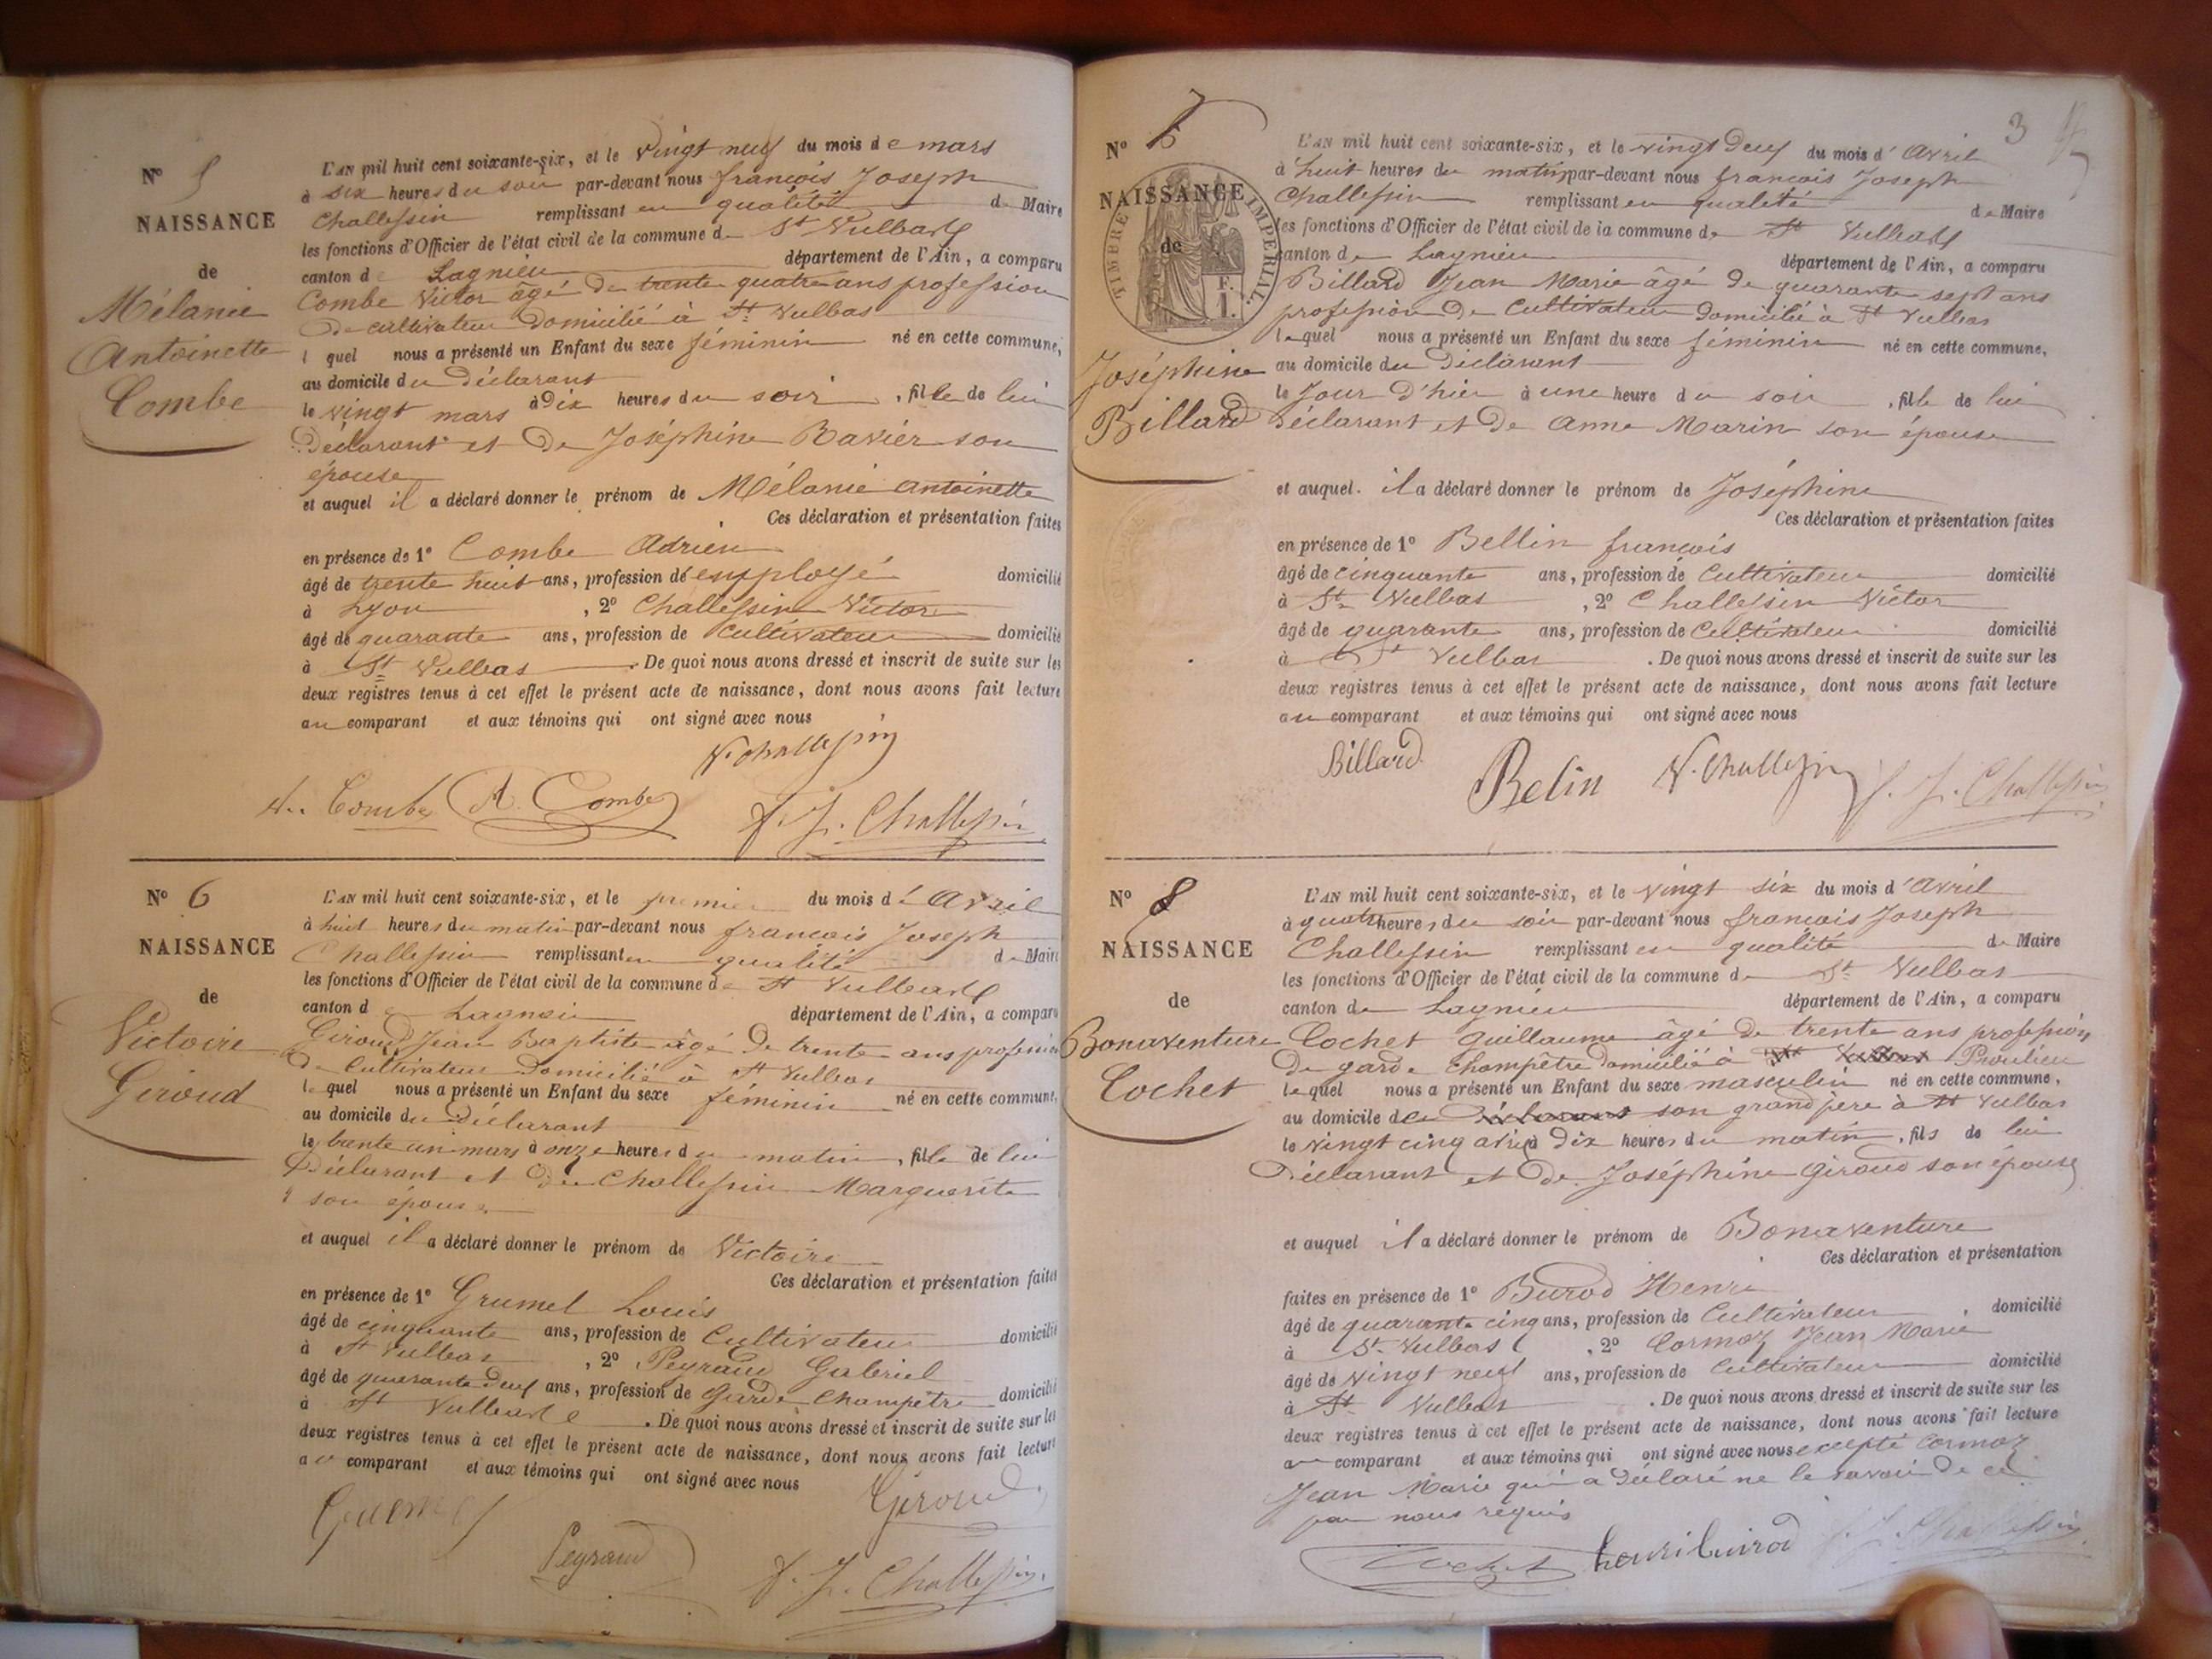 N° 5
NAISSANCE
de
Mélanie
Antoinette
Combe
L'AN mil huit cent soixante-six, et le vingt neuf du mois de mars
à six heures du soir par-devant nous françois Joseph
Challessin remplissant en qualité de Maire
les fonctions d'Officier de l'état civil de la commune de St Vulbas
canton de Lagnieu département de l'Ain, a comparu
Combe Victor âgé de trente quatre ans profession
de cultivateur domicilié à St Vulbas
l quel nous a présenté un Enfant du sexe féminin né en cette commune,
au domicile du déclarant
le vingt mars à Dix heures du soir, fille de lui
Déclarant et de Joséphine Ravier son
épouse
et auquel il a déclaré donner le prénom de Mélanie Antoinette
Ces déclaration et présentation faites
en présence de 1° Combe Adrien
âgé de trente huit ans, profession de employé domicilié
à Lyon, 2° Challessin Victor
âgé de quarante ans, profession de cultivateur domicilié
à St Vulbas. De quoi nous avons dressé et inscrit de suite sur les
deux registres tenus à cet effet le présent acte de naissance, dont nous avons fait lecture
au comparant et aux témoins qui ont signé avec nous
V. Challessin
Combe A. Combe f. J. Challessin
N° 6
NAISSANCE
de
Victoire
Giroud
L'AN mil huit cent soixante-six, et le premier du mois d'Avril
à huit heures du matin par-devant nous françois Joseph
Challessin remplissant en qualité de Maire
les fonctions d'Officier de l'état civil de la commune de St Vulbas
canton d Lagnieu département de l'Ain, a comparu
Giroud Jean Baptiste âgé de trente ans profession
de Cultivateur Domicilié à St Vulbas
lequel nous a présenté un Enfant du sexe féminin né en cette commune,
au domicile du Déclarant
le trente un mars à onze heures du matin, fille de lui
Déclarant et de Challessin Marguerite
son épouse
et auquel il a déclaré donner le prénom de Victoire
Ces déclaration et présentation faites
en présence de 1° Grumel Louis
âgé de cinquante ans, profession de Cultivateur domicilié
à St Vulbas, 2° Peyraud Gabriel
âgé de quarante deux ans, profession de Garde Champêtre domicilié
à St Vulbas. De quoi nous avons dressé et inscrit de suite sur les
deux registres tenus à cet effet le présent acte de naissance, dont nous avons fait lecture
au comparant et aux témoins qui ont signé avec nous
Grumel Giroud
Peyraud f. J. Challessin
3
N° 7
NAISSANCE
de
TIMBRE IMPERIAL
1 F.
Joséphine
Billard
L'AN mil huit cent soixante-six, et le vingt deux du mois d'Avril
à huit heures du matin par-devant nous françois Joseph
Challessin remplissant en qualité de Maire
les fonctions d'Officier de l'état civil de la commune de St Vulbas
canton de Lagnieu département de l'Ain, a comparu
Billard Jean Marie âgé de quarante sept ans
profession de Cultivateur domicilié à St Vulbas
lequel nous a présenté un Enfant du sexe féminin né en cette commune,
au domicile du Déclarant
le Jour d'hier à une heure du soir, fille de lui
Déclarant et de Anne Marin son épouse
et auquel. il a déclaré donner le prénom de Joséphine
Ces déclaration et présentation faites
en présence de 1° Bellin françois
âgé de cinquante ans, profession de Cultivateur domicilié
à St Vulbas, 2° Challessin Victor
âgé de quarante ans, profession de Cultivateur domicilié
à St Vulbas. De quoi nous avons dressé et inscrit de suite sur les
deux registres tenus à cet effet le présent acte de naissance, dont nous avons fait lecture
au comparant et aux témoins qui ont signé avec nous
Billard Belin V. Challessin f. J. Challessin
N° 8
NAISSANCE
de
Bonaventure
Cochet
L'AN mil huit cent soixante-six, et le vingt six du mois d'Avril
à quatre heures du soir par-devant nous françois Joseph
Challessin remplissant en qualité de Maire
les fonctions d'Officier de l'état civil de la commune de St Vulbas
canton de Lagnieu département de l'Ain, a comparu
Cochet Guillaume âgé de trente ans profession
de garde Champêtre domicilié à St Vulbas Proulieu
lequel nous a présenté un Enfant du sexe masculin né en cette commune,
au domicile de Déclarant son grand père à St Vulbas
le vingt cinq avril à Dix heures du matin, fils de lui
Déclarant et de Joséphine Giroud son épouse
et auquel il a déclaré donner le prénom de Bonaventure
Ces déclaration et présentation
faites en présence de 1° Buirod Henri
âgé de quarante cinq ans, profession de Cultivateur domicilié
à St Vulbas, 2° Cormoz Jean Marie
âgé de vingt neuf ans, profession de Cultivateur domicilié
à St Vulbas. De quoi nous avons dressé et inscrit de suite sur les
deux registres tenus à cet effet le présent acte de naissance, dont nous avons fait lecture
au comparant et aux témoins qui ont signé avec nous excepté Cormoz
Jean Marie qui a déclaré ne le savoir de ce
par nous requis
Cochet henri buirod f. J. Challessin